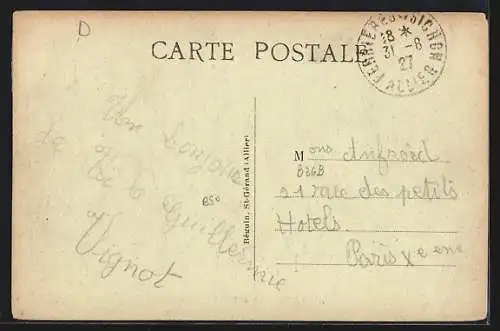 D
CARTE POSTALE
18 *
31 -8
27
Un bonjour
de
de la Guillermie
Vignot
B50
Béguin, St-Gérand (Allier)
Mons Anfroid
B26B
21 rue des petits
Hotels
Paris Xe